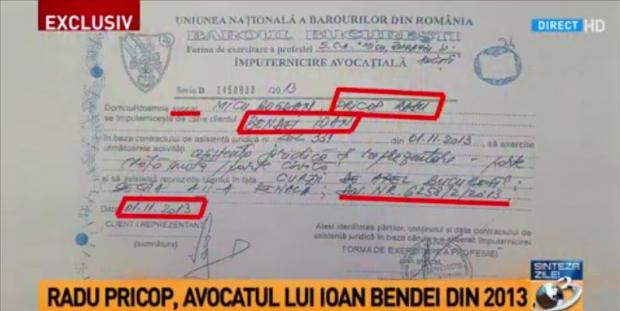 EXCLUSIV
DIRECT HD
UNIUNEA NAȚIONALĂ A BAROURILOR DIN ROMÂNIA
BAROUL BUCUREȘTI
Forma de exercitare a profesiei S.C.A.
ÎMPUTERNICIRE AVOCAȚIALĂ
Seria B 1450833 /2013
Domnul/doamna avocat MICU BOGDAN, PRICOP RADU
se împuternicește de către clientul BENDEI IOAN
în baza contractului de asistență juridică nr. 331 din 01.11.2013, să exercite
următoarele activități: asistență juridică și reprezentare - parte
și să asiste/să reprezinte clientul în fața CURȚII DE APEL BUCUREȘTI
SECȚIA A II-A PENALĂ
Data 01.11.2013
CLIENT/REPREZENTANT
(semnătura)
Atest identitatea părților, conținutul și data contractului de
asistență juridică în baza căruia s-a eliberat împuternicirea
FORMA DE EXERCITARE A PROFESIEI
SINTEZA
ZILEI
RADU PRICOP, AVOCATUL LUI IOAN BENDEI DIN 2013